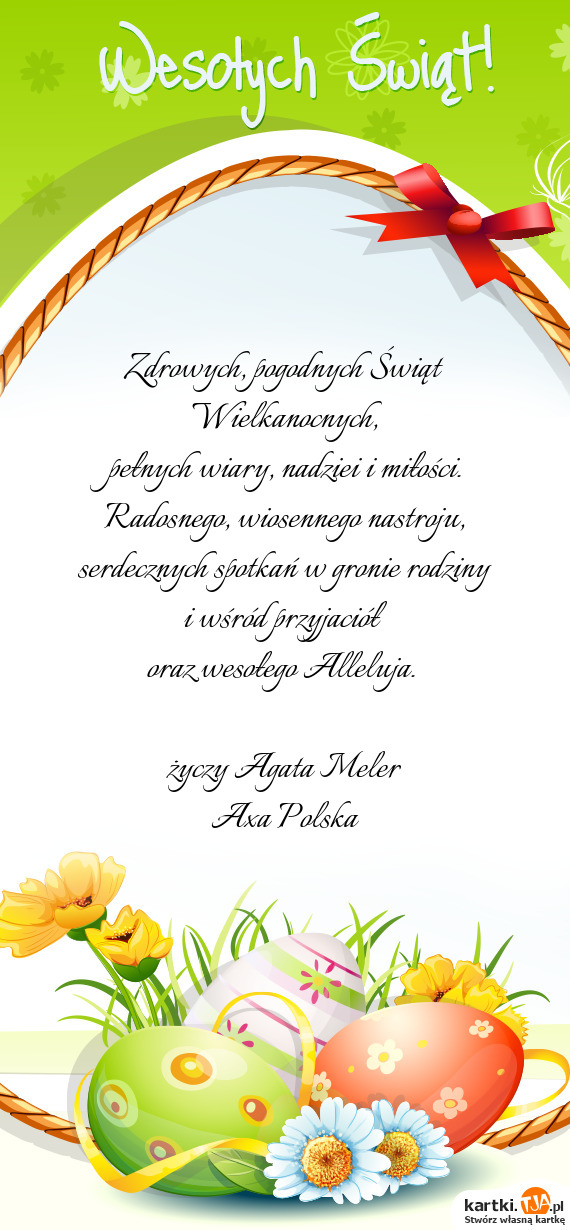 Wesołych Świąt!
Zdrowych, pogodnych Świąt
Wielkanocnych,
pełnych wiary, nadziei i miłości.
Radosnego, wiosennego nastroju,
serdecznych spotkań w gronie rodziny
i wśród przyjaciół
oraz wesołego Alleluja.
życzy Agata Meler
Axa Polska
kartki.TJA.pl
Stwórz własną kartkę